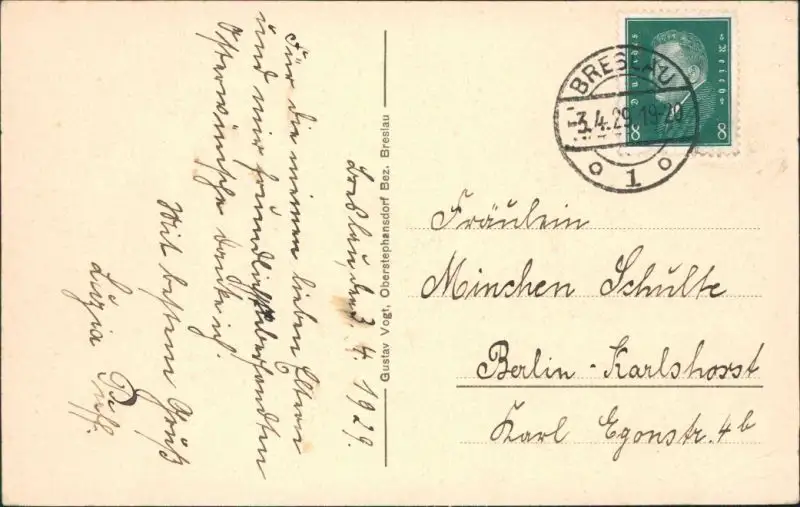 Breslau, den 3. 4. 1929.
Für die meinen lieben Eltern
und mir freundlichst übersandten
Osterwünsche danke ich.
Mit bestem Gruß
Luzia
Gustav Vogt, Oberstephansdorf Bez. Breslau
Deutsches Reich
8 8
BRESLAU
-3.4.29.19-20
1
Fräulein
Minchen Schulte
Berlin-Karlshorst
Karl Egonstr. 4b